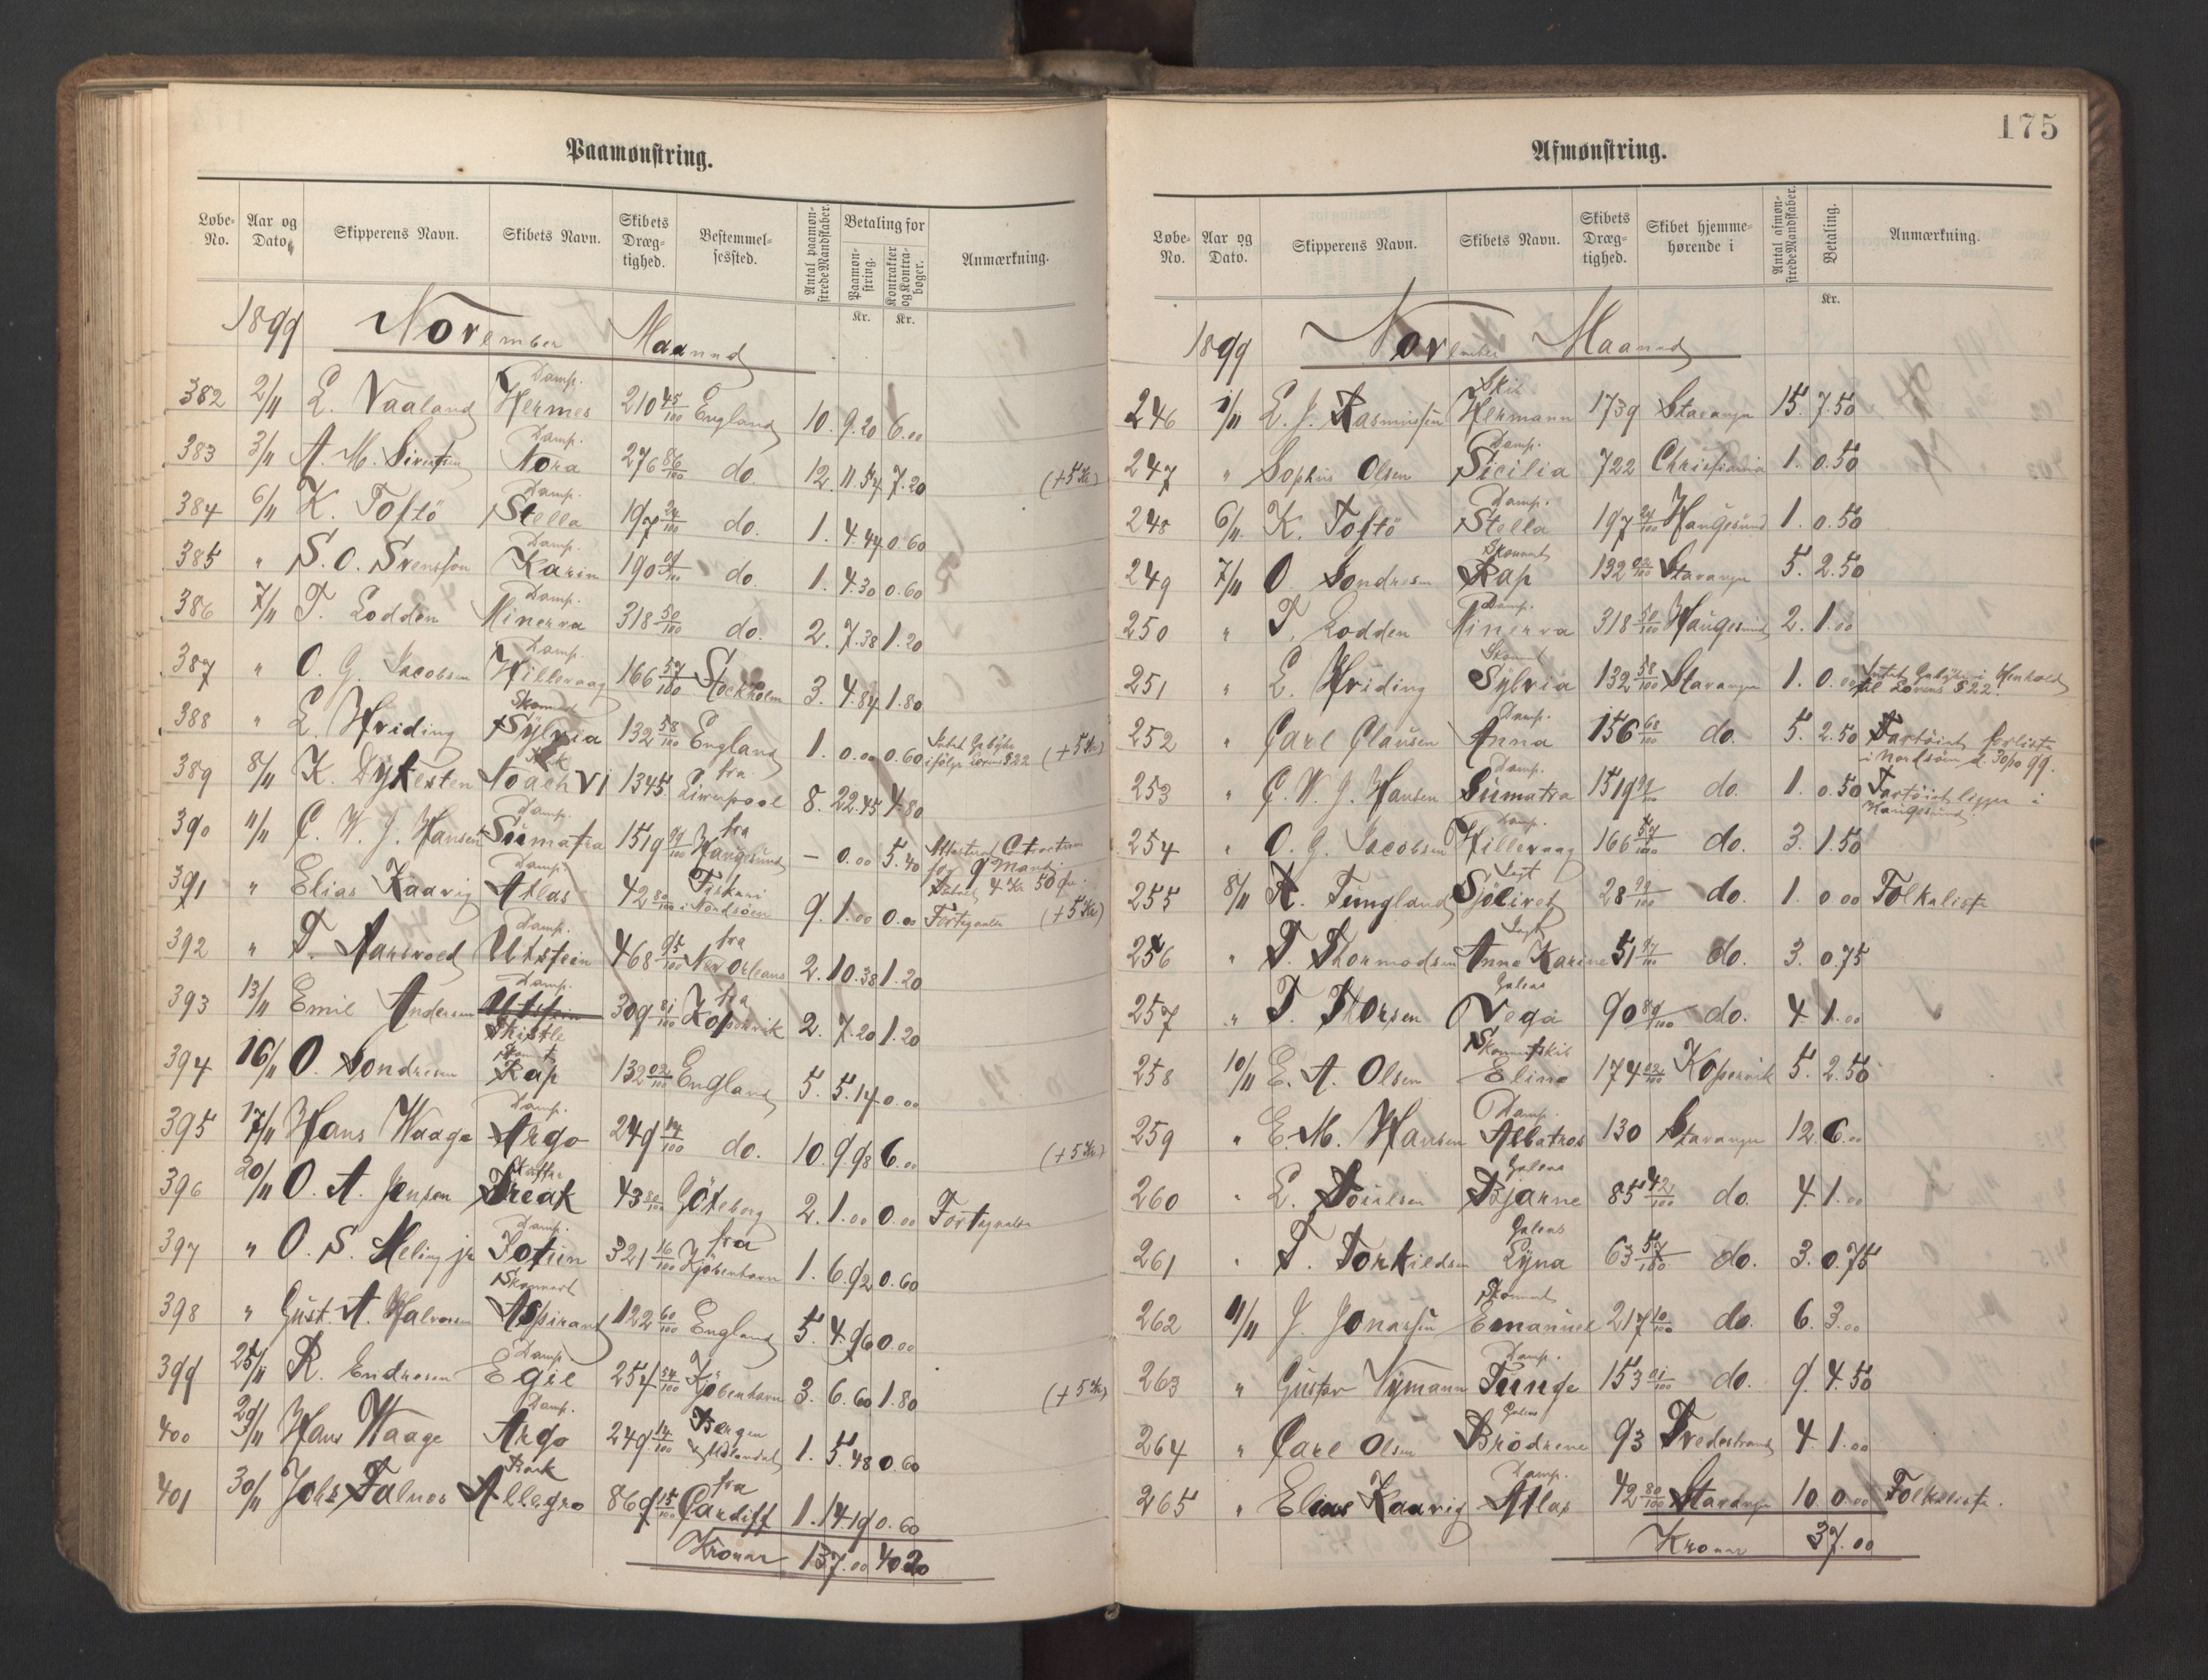 Paamønstring.
Løbe-No. Aar og Dato. Skipperens Navn. Skibets Navn. Skibets Dræg-tighed. Bestemmel-sessted. Antal paamøn-strede Mandskaber. Betaling for Paamøn-string. Kontrakter og Kontra-bøger. Anmærkning.
Kr. Kr.
1899 November Maaned
382 2/11 L. Vaaland Damp. Hermes 210 45/100 England 10. 9.20 6.00
383 3/11 A. M. Sivertsen Damp. Nora 276 86/100 do. 12. 11.54 7.20 (+5 Kr)
384 6/11 K. Toftö Damp. Stella 197 24/100 do. 1. 4.44 0.60
385 " S. O. Svensson Damp. Karin 190 09/100 do. 1. 4.30 0.60
386 7/11 T. Lodden Damp. Minerva 318 50/100 do. 2. 7.38 1.20
387 " O. G. Jacobsen Damp. Hillevaag 166 57/100 Stockholm 3. 4.84 1.80
388 " L. Hviding Skonnert Sÿlvia 132 58/100 England 1. 0.00 0.60 Intet Gebÿhr ifølge Lovens § 22 (+5 Kr)
389 8/11 K. Dÿkesten Noach VI 1345 fra Liverpool 8. 22.45 4.80
390 11/11 C. W. J. Hansen Damp. Sumatra 1519 99/100 fra Haugesund – 0.00 5.40 for 9 Mand. 4 Kr 50 Øre.
391 " Elias Kaavig Damp. Atlas 42 80/100 Fiskeri i Nordsøen 9. 1.00 0.00 Fortegnelse (+5 Kr)
392 " T. Aarsvold Damp. Utstein 468 95/100 fra New Orleans 2. 10.38 1.20
393 13/11 Emil Andersen Damp. Utstein Thistle 309 81/100 fra Kopervik 2. 7.20 1.20
394 16/11 O. Sondresen Skonnt Rap 132 02/100 England 5. 5.14 0.00
395 17/11 Hans Waage Damp. Argo 249 14/100 do. 10. 9.98 6.00 (+5 Kr)
396 20/11 O. A. Jensen Kutter Freak 43 80/100 Göteborg 2. 1.00 0.00 Fortegnelse
397 " O. S. Meling jr Damp. Jotun 321 16/100 fra Kjøbenhavn 1. 6.92 0.60
398 " Gust. A. Halvorsen Skonnert Aspirant 122 60/100 England 5. 4.96 0.00
399 25/11 R. Endresen Damp. Egil 254 54/100 Kjøbenhavn 3. 6.60 1.80 (+5 Kr)
400 29/11 Hans Waage Damp. Argo 249 14/100 Bergen & Udlandet 1. 5.48 0.60
401 30/11 Johs Falnes Bark Allegro 869 15/100 fra Cardiff 1. 14.19 0.60
Kroner 137.00 40.20
175
Afmønstring.
Løbe-No. Aar og Dato. Skipperens Navn. Skibets Navn. Skibets Dræg-tighed. Skibet hjemme-hørende i Antal afmøn-strede Mandskaber. Betaling. Anmærkning.
Kr.
1899 November Maaned
246 1/11 L. J. Rasmussen Skib Hermann 1739 Stavanger 15. 7.50
247 " Sophus Olsen Damp. Sicilia 722 Christiania 1. 0.50
248 6/11 K. Toftö Damp. Stella 197 24/100 Haugesund 1. 0.50
249 7/11 O. Sondresen Skonnert Rap 132 02/100 Stavanger 5. 2.50
250 " T. Lodden Damp. Minerva 318 50/100 Haugesund 2. 1.00
251 " L. Hviding Skonnert Sÿlvia 132 58/100 Stavanger 1. 0.00 Intet Gebÿhr i Henhold til Lovens § 22.
252 " Carl Clausen Damp. Anna 156 68/100 do. 5. 2.50 Fartøiet forliste i Nordsøen d. 30/10 99.
253 " C. W. J. Hansen Damp. Sumatra 1519 99/100 do. 1. 0.50 Fartøiet ligger i Haugesund
254 " O. G. Jacobsen Damp. Hillevaag 166 57/100 do. 3. 1.50
255 8/11 R. Tungland Jagt Sjölivet 28 99/100 do. 1. 0.00 Folkeliste
256 " T. Thormodsen Jagt Anna Karine 51 97/100 do. 3. 0.75
257 " T. Thorsen Galeas Vega 90 89/100 do. 4. 1.00
258 10/11 E. A. Olsen Skonnertskib Eline 174 02/100 Kopervik 5. 2.50
259 " E. M. Hansen Damp. Albatros 130 Stavanger 12. 6.00
260 " L. Poulsen Galeas Bjarne 85 42/100 do. 4. 1.00
261 " T. Torkildsen Galeas Lÿna 63 57/100 do. 3. 0.75
262 11/11 J. Jonassen Skonnert Emanuel 217 10/100 do. 6. 3.00
263 " Gustav Nÿmann Damp. Tunge 153 01/100 do. 9. 4.50
264 " Carl Olsen Galeas Brödrene 93 Tvedestrand 4. 1.00
265 " Elias Kaavig Damp. Atlas 42 80/100 Stavanger 10. 0.00 Folkeliste.
Kroner 37.00